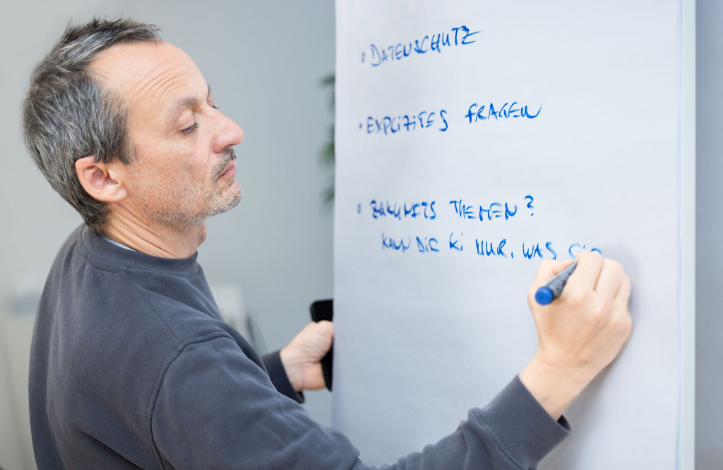 • DATENSCHUTZ
• EXPLIZITES FRAGEN
• ZUKUNFTS THEMEN?
KANN DIE KI NUR, WAS SIE